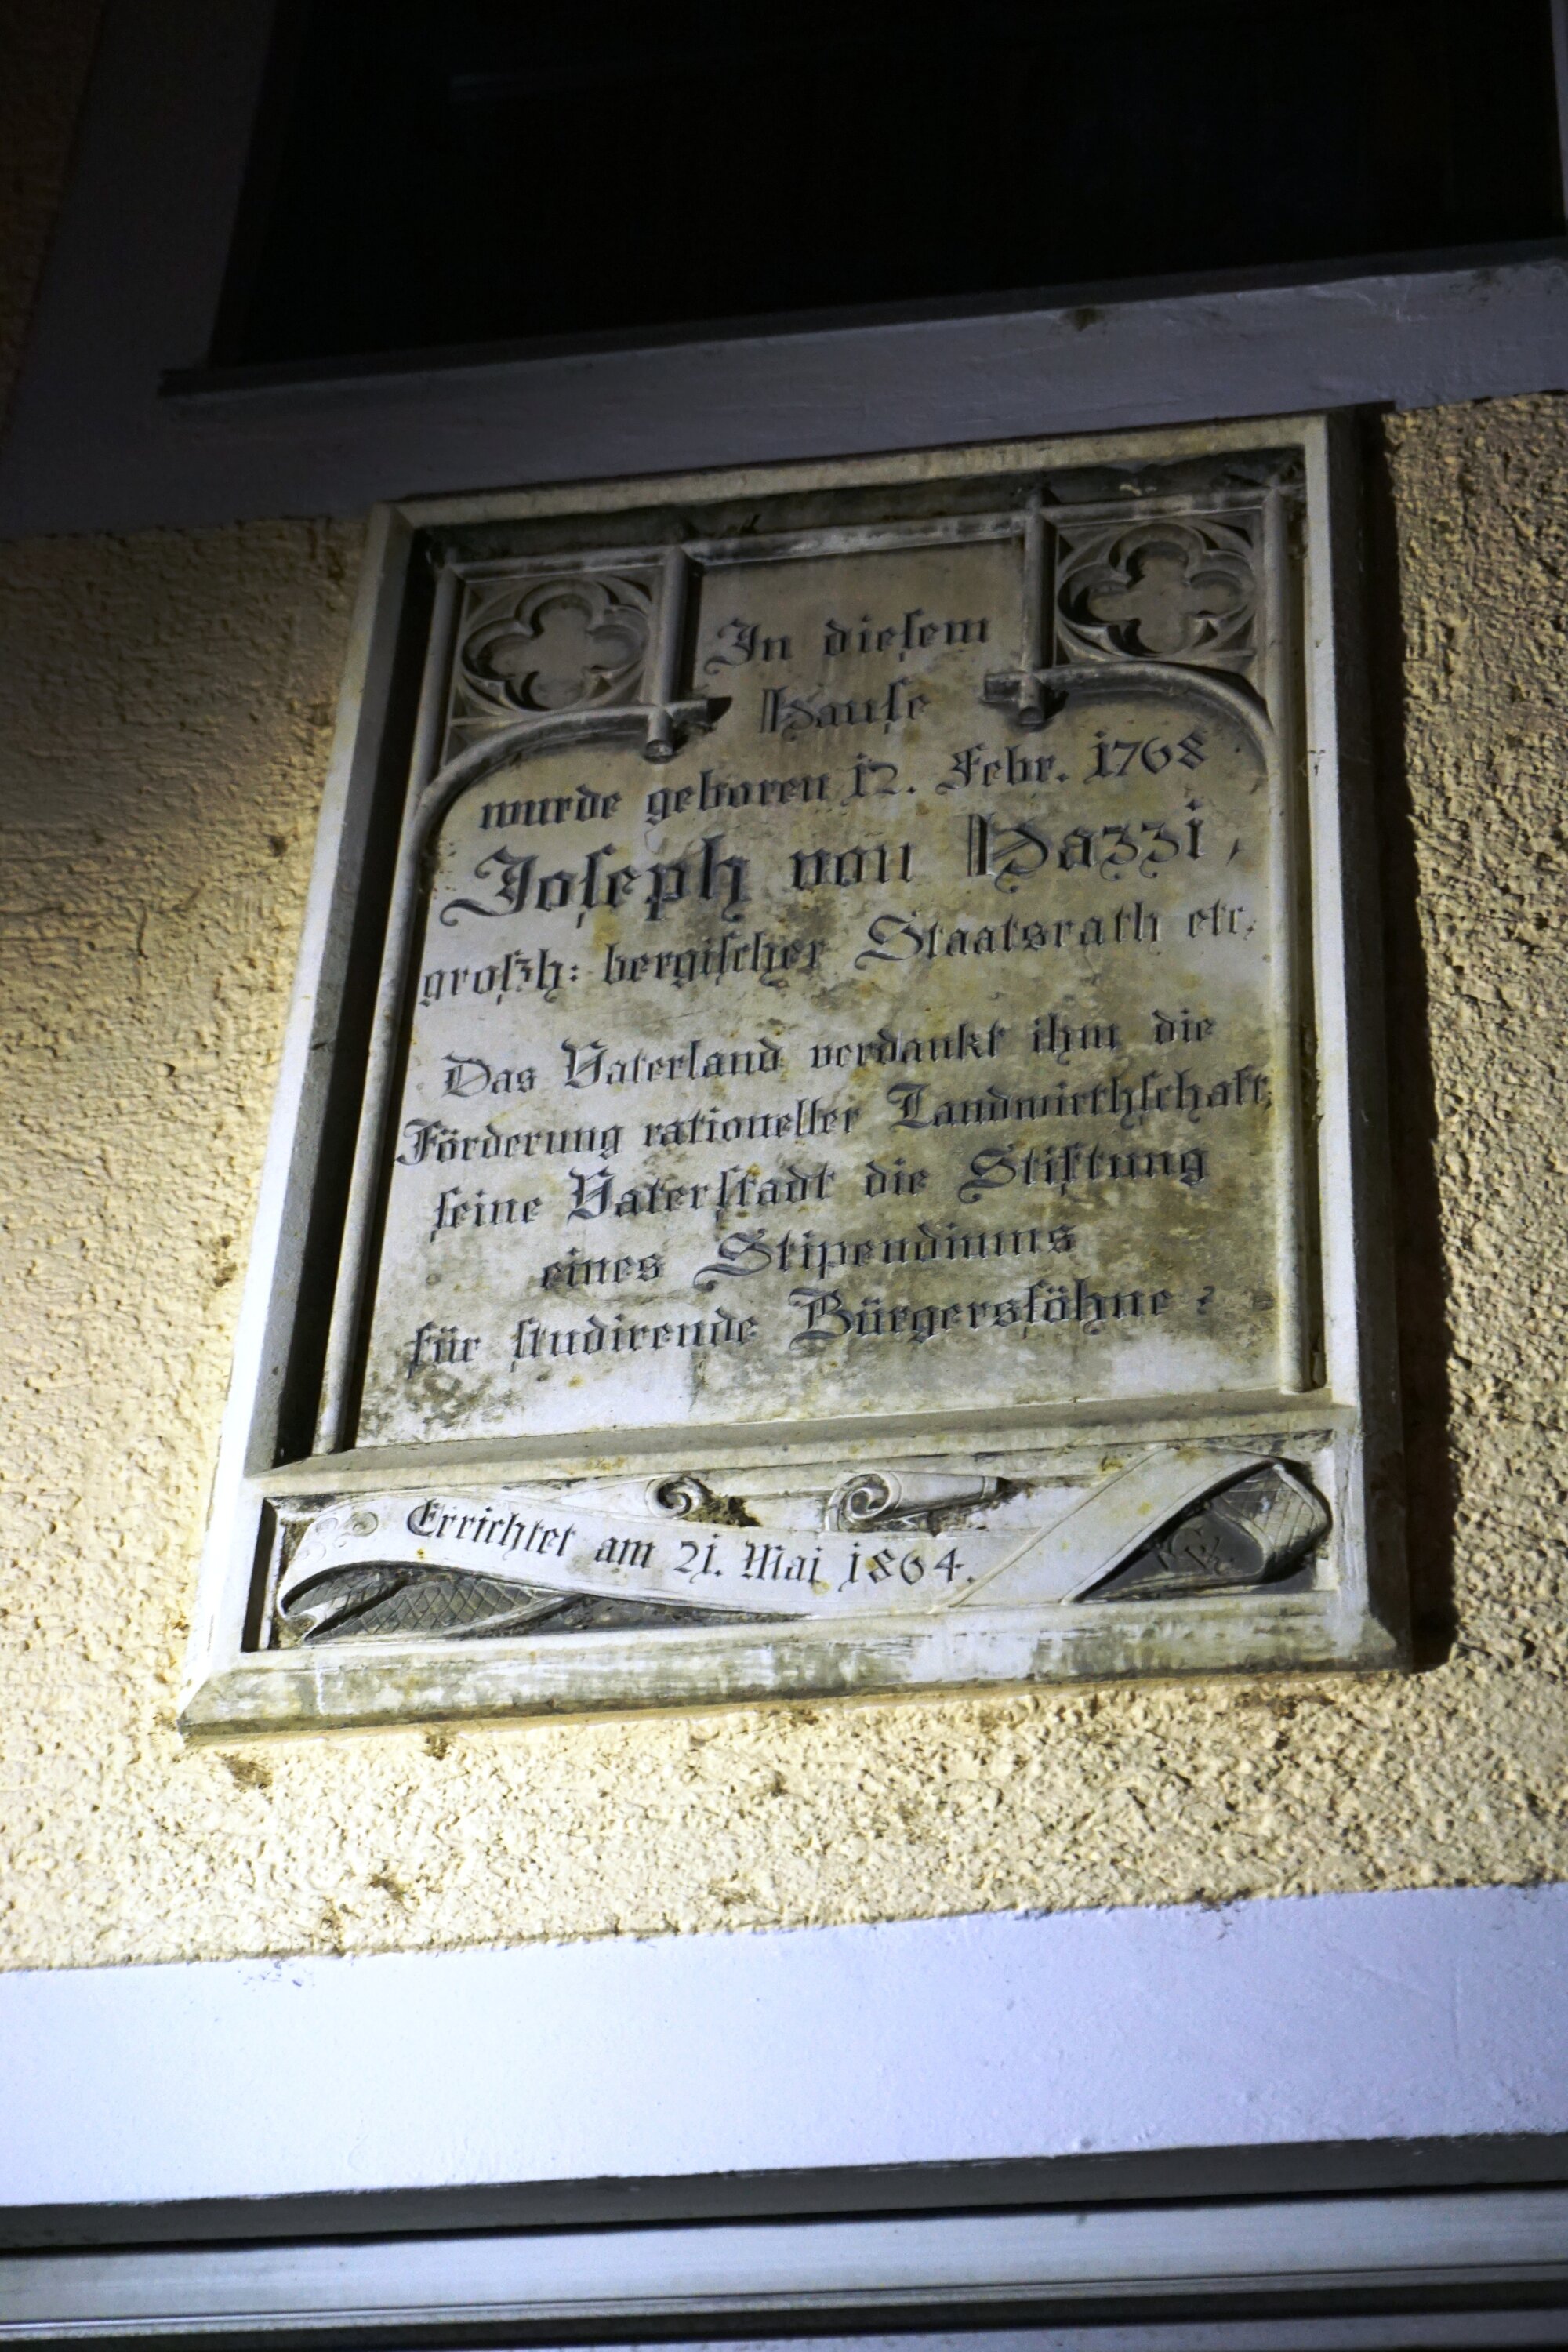 In dieſem
Hauſe
wurde geboren 12. Febr. 1768
Joſeph von Hazzi,
großh: bergiſcher Staatsrath etc.
Das Vaterland verdankt ihm die
Förderung rationeller Landwirthſchaft,
ſeine Vaterſtadt die Stiftung
eines Stipendiums
für ſtudirende Bürgersſöhne
Errichtet am 21. Mai 1864.